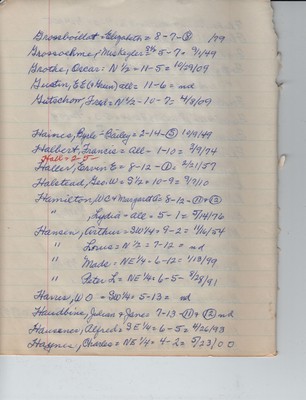 Grossboillot Elizabeth = 8-7-⑧ /99
5-7= 9/1/49
Grothe, Oscar = N 1/2 = 11-5 = 10/29/09
Gustin, E E all = 11-6 = nd
Gutschow, Fred = N 1/2 - 10-7 = 4/8/09
Haines, 2-14-⑤ 10/8/49
Halbert, Francis = All- 1-10= 2/9/94
Hall = 2-5-
Haller, Erven E = 8-12-①= 2/21/57
Halstead, Geo. W = S 1/2 = 10-9= 9/7/10
Hamilton, WC & Margaret = 8-12-⑪&⑫
" , Lydia - All = 5-1= 5/14/76
Hansen, Arthur = SW 1/4 = 9-2 = 11/6/54
" Louis = N 1/2 = 7-12 = nd
" Mads = NE 1/4 = 6-12= 1/13/99
" Peter L = NE 1/4 = 6-5- 8/28/91
W O = SW 1/4 = 5-13= nd
Julius & Jane 7-13-⑪&⑫ nd
Haussner, Alfred = SE 1/4 = 6-5= 4/26/93
Haynes, Charles = NE 1/4 = 4-2= 5/23/00